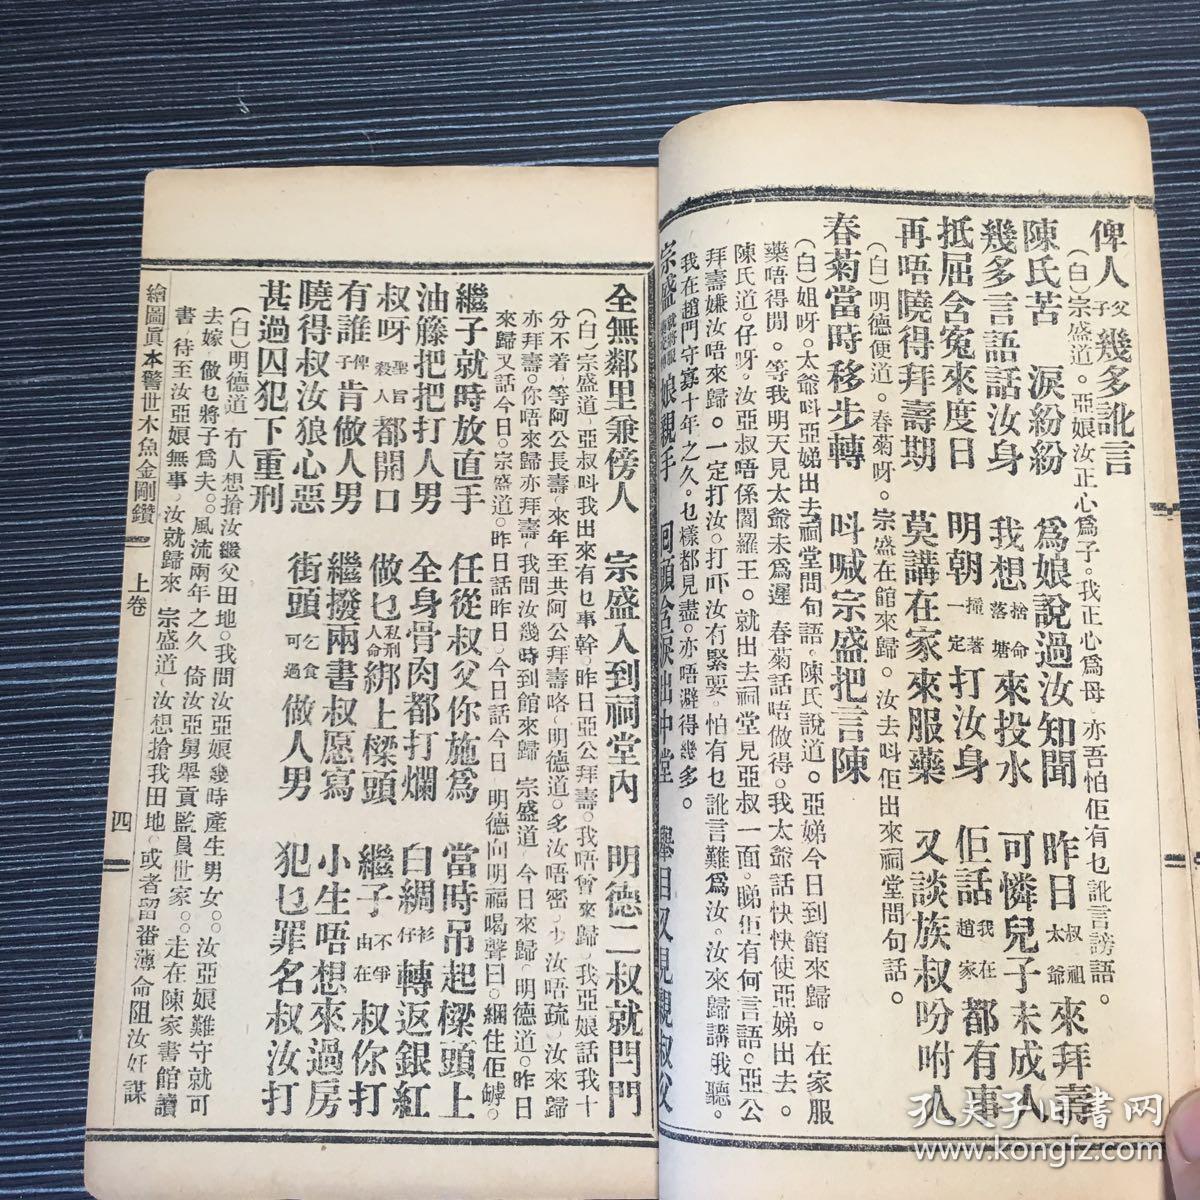 俾人父子幾多訛言
(白)宗盛道。亞娘汝正心爲子。我正心爲母。亦吾怕佢有乜訛言謗語。
陳氏苦 淚紛紛 爲娘說過汝知聞 昨日叔祖太爺來拜壽
幾多言語話汝身 我想捨命落塘來投水 可憐兒子未成人
抵屈含冤來度日 明朝撞著一定打汝身 佢話我在趙家都有事
再唔曉得拜壽期 莫講在家來服藥 又談族叔吩咐人
(白)明德便道。春菊呀。宗盛在館來歸。汝去呌佢出來祠堂問句話。
春菊當時移步轉 呌喊宗盛把言陳
(白)姐呀。太爺呌亞娣出去祠堂問句語。陳氏說道。亞娣今日到館來歸。在家服
藥唔得閒。等我明天見太爺未爲遲 春菊話唔做得。我太爺話快快使亞娣出去。
陳氏道。仔呀。汝亞叔唔係閻羅王。就出去祠堂見亞叔一面。睇佢有何言語。亞公
拜壽嫌汝唔來歸。一定打汝。打吓汝有緊要。怕有乜訛言難爲汝。汝來歸講我聽。
我在趙門守寡十年之久。乜樣都見盡。亦唔避得幾多。
娘親手 回頭含淚出中堂 舉目又見親叔父
全無鄰里兼傍人 宗盛入到祠堂內 明德二叔就閂門
(白)宗盛道。亞叔呌我出來有乜事幹。昨日亞公拜壽。我唔會來歸。我亞娘話我十
分不着。等阿公長壽。來年至共阿公拜壽咯。明德道。多汝唔密。少汝唔疏。汝來歸
亦拜壽。你唔來歸亦拜壽。我問汝幾時到館來歸 宗盛道。今日來歸。明德道。昨日
來歸又話今日。宗盛道。昨日話昨日。今日話今日 明德向明福喝聲曰。綑住佢罅。
繼子就時放直手 任從叔父你施爲 當時吊起樑頭上
油籐把把打人男 全身骨肉都打爛 白綢衫仔轉返銀紅
叔呀聖旨殺人都開口 做乜私刑人命綁上樑頭 繼子不由爭在叔你打
有誰俾子肯做人男 繼撥兩書叔愿寫 小生唔想來過房
曉得叔汝狼心惡 街頭乞食可過做人男 犯乜罪名叔汝打
甚過囚犯下重刑
(白)明德道 冇人想搶汝繼父田地。我問汝亞娘幾時產生男女。。汝亞娘難守就可
去嫁。做乜將子爲夫。。風流兩年之久 倚汝亞舅舉貢監員世家。。走在陳家書館讀
書 待至汝亞娘無事。汝就歸來 宗盛道。汝想搶我田地。或者留番薄命阻汝奸謀
繪圖眞本警世木魚金剛鑽 上卷 四
孔夫子旧书网
www.kongfz.com